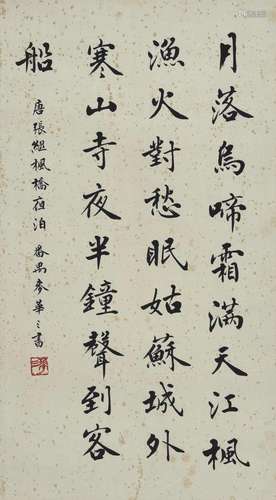 月落烏啼霜滿天江楓
漁火對愁眠姑蘇城外
寒山寺夜半鐘聲到客
船
唐張継楓橋夜泊 番禺麥華三書